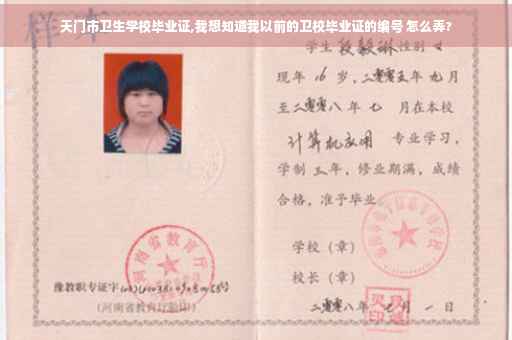 天门市卫生学校毕业证,我想知道我以前的卫校毕业证的编号 怎么弄?
样本
学生 段毅琳 性别 女
现年 16 岁,二零零五年 九月
至二零零八年 七 月在本校
计算机应用 专业学习,
学制 三年,修业期满,成绩
合格,准予毕业
学校(章)
校长(章)
河南省教育厅
豫教职专证字
(河南省教育厅验印)
二零零八年 七 月 一 日